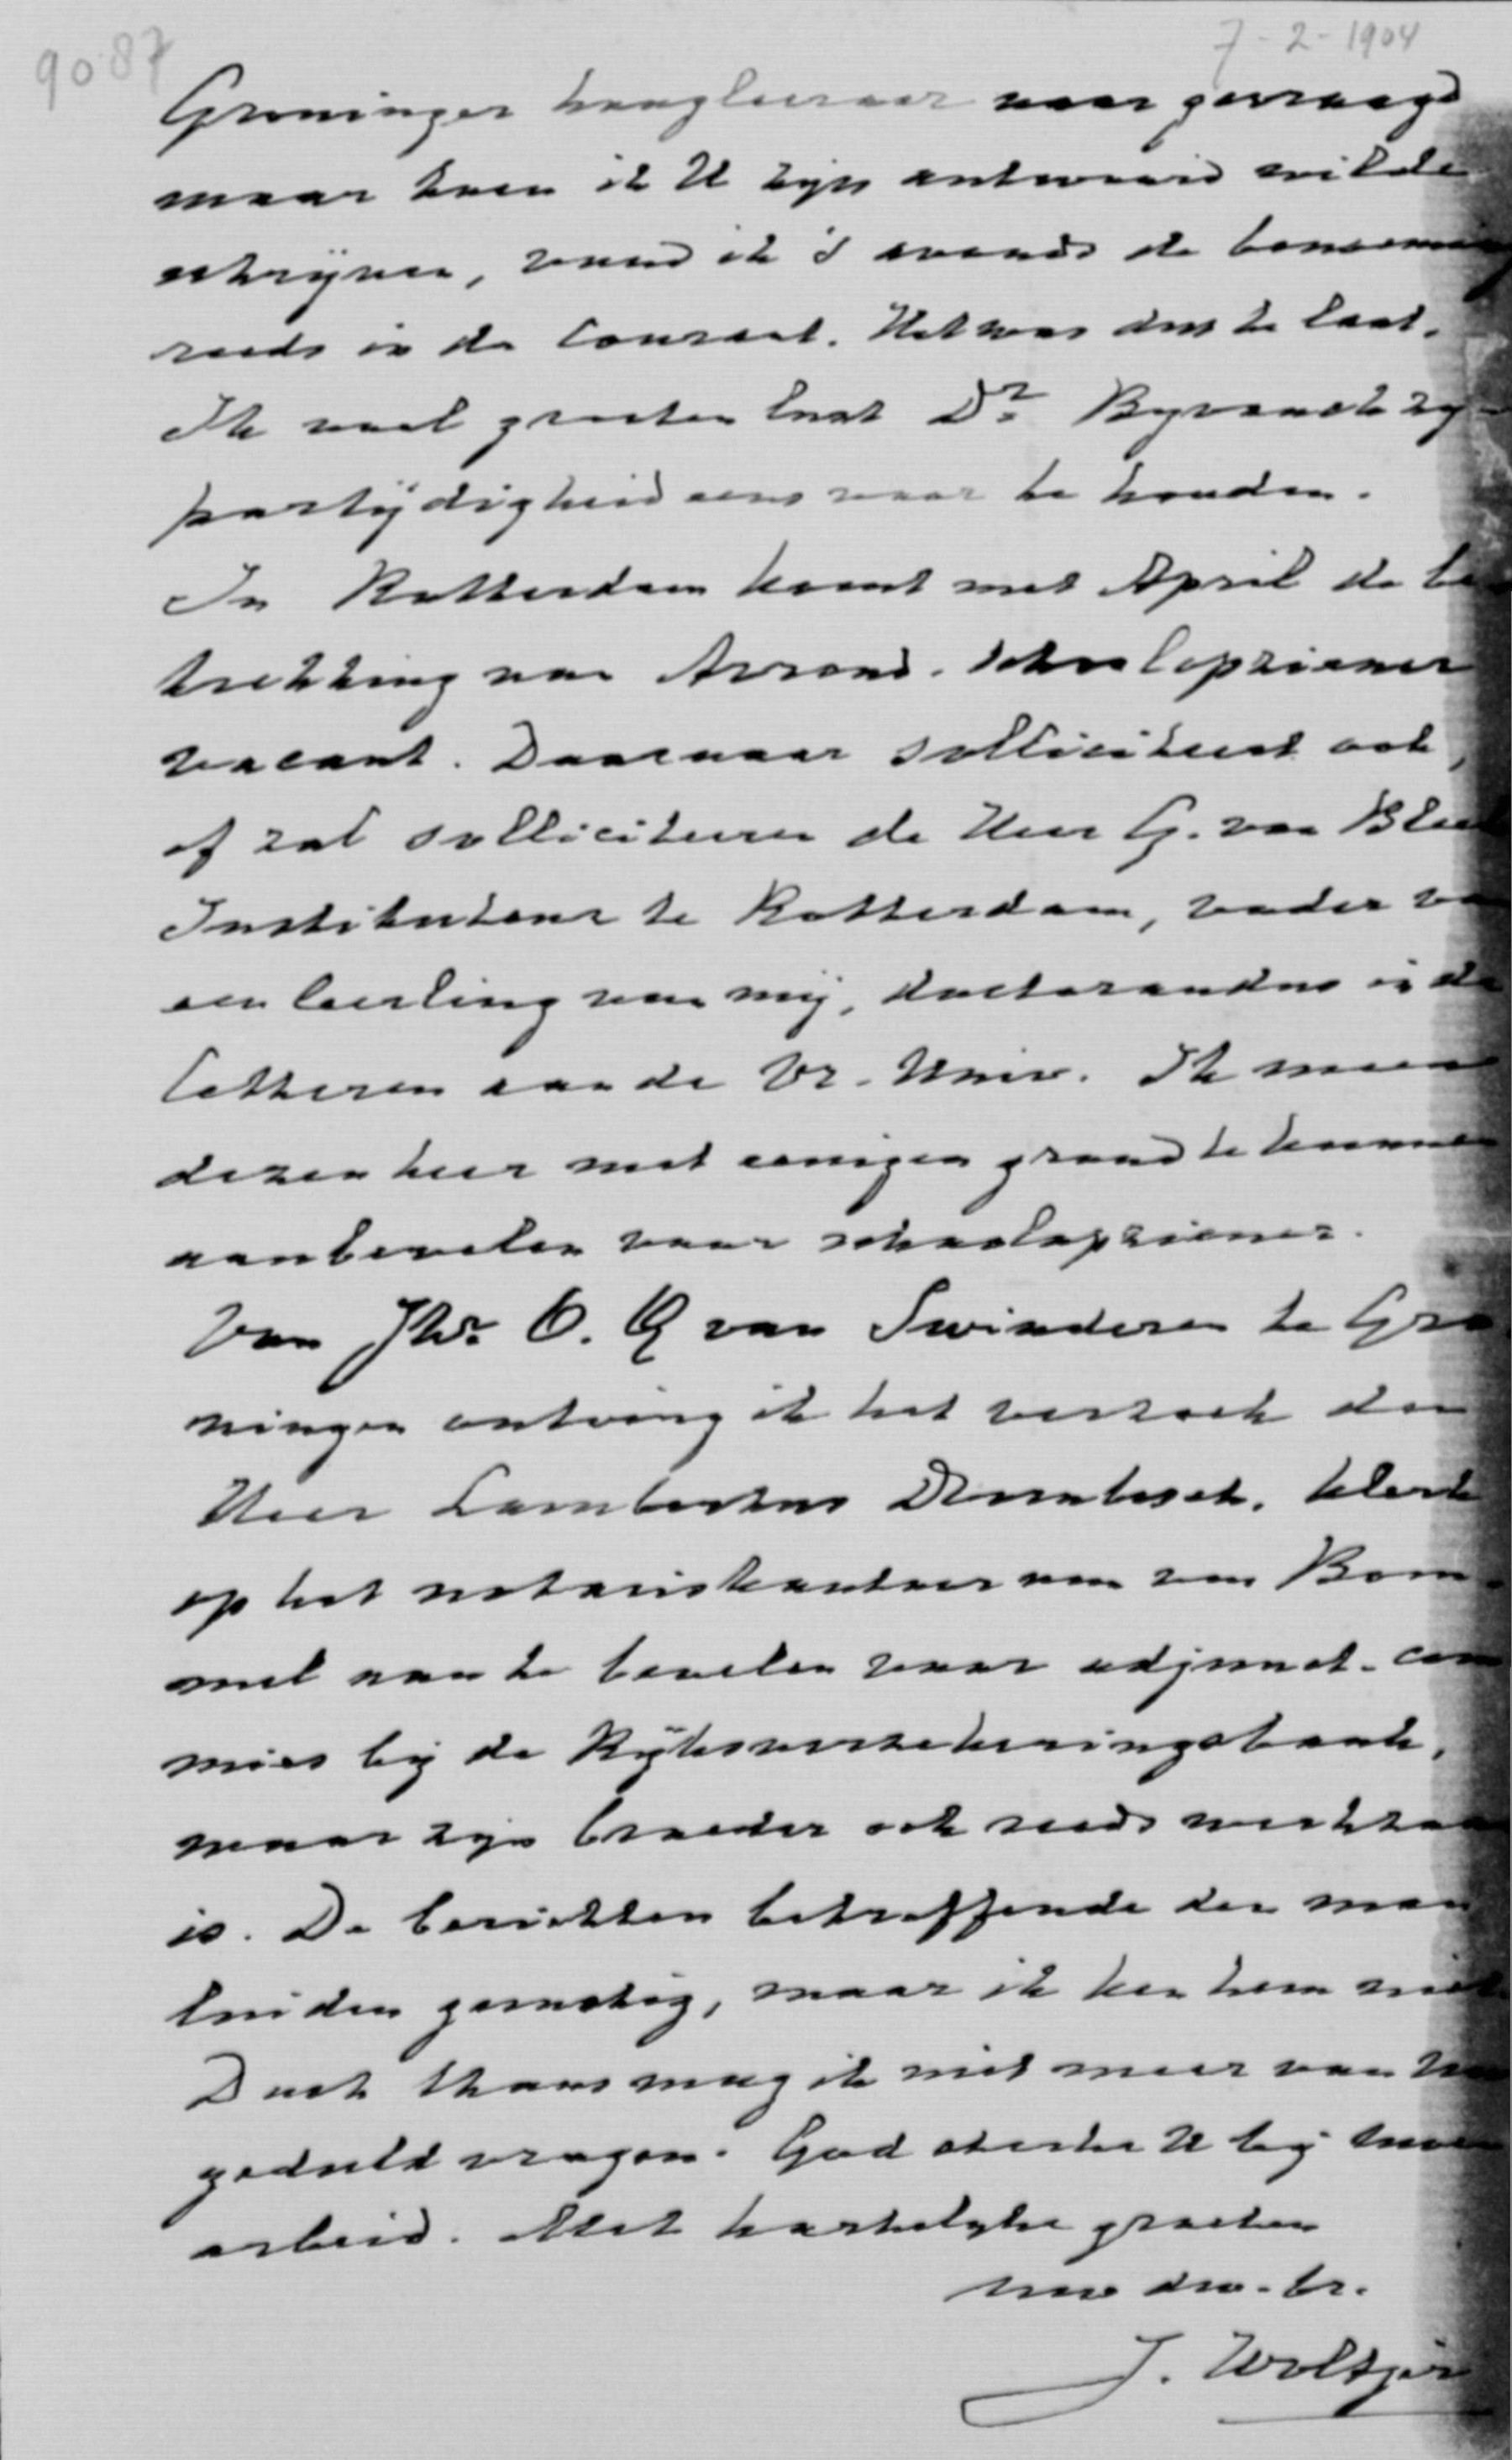 9087
7-2-1904
Groninger hoogleeraar naar gevraagd
maar toen ik U zijn antwoord wilde
schrijven, vond ik 's avonds de benoeming
reeds in de Courant. Het was dus te laat.
Ik voel grooten lust Dr. Byvanck zijn
partijdigheid eens voor te houden.
In Rotterdam komt met April de be
trekking van Arrond. schoolopziener
vacant. Daarnaar solliciteert ook,
of zal solliciteeren de Heer G. van
Instituteur te Rotterdam, vader van
een leerling van mij, doctorandus in de
letteren aan de Vr. Univ. Ik meen
dezen heer met eenigen grond te kunnen
aanbevelen voor schoolopziener.
Van Jhr. O. Q van Swinderen te Gro
ningen ontving ik het verzoek den
Heer Lambertus klerk
op het notariskantoor van van Bom-
mel aan te bevelen voor adjunct-com
mies bij de Rijksverzekeringsbank,
waar zijn broeder ook reeds werkzaam
is. De berichten betreffende den man
luiden gunstig, maar ik ken hem niet
Doch thans mag ik niet meer van Uw
geduld vragen. God sterke U bij Uwen
arbeid. Met hartelijke groeten
Uw dw. br.
J. Woltjer